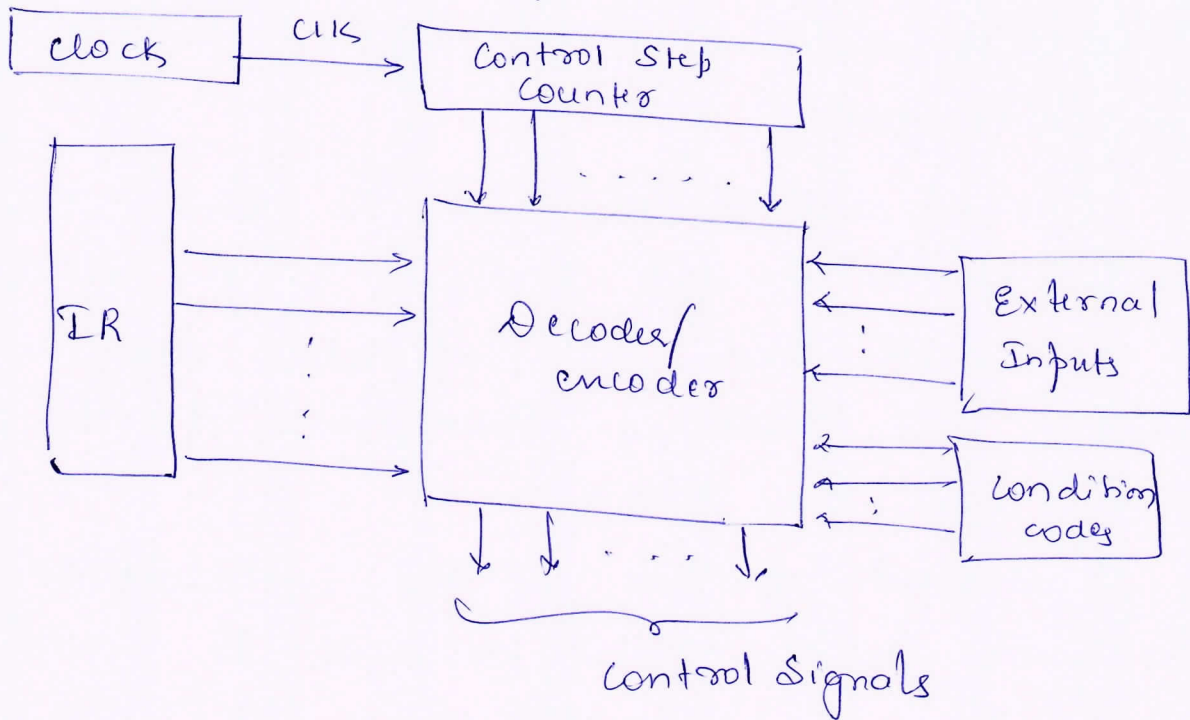 Clock
Clk
Control Step
Counter
IR
Decoder/
encoder
External
Inputs
Condition
codes
Control Signals